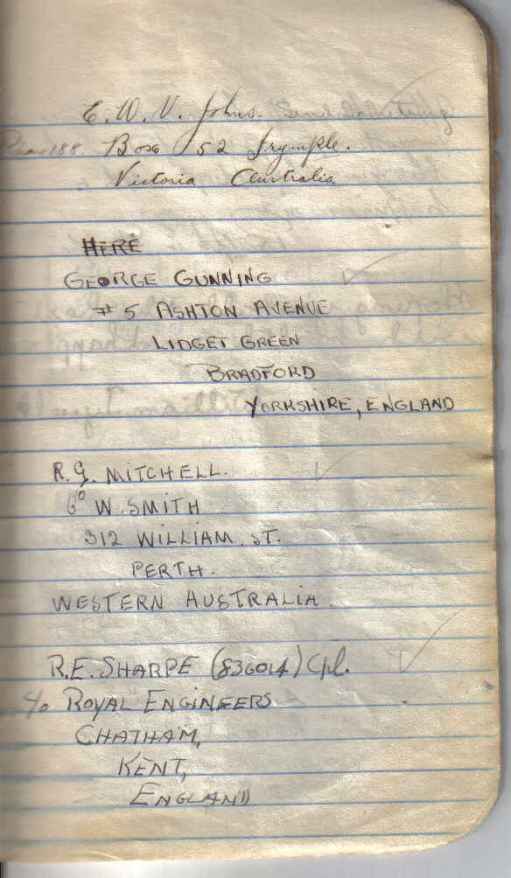 E. W. V. Johns.
Box 52 Irymple.
Victoria Australia
HERE
GEORGE GUNNING
#5 ASHTON AVENUE
LIDGET GREEN
BRADFORD
YORKSHIRE, ENGLAND
R. G. MITCHELL.
C/o W. SMITH
312 WILLIAM. ST.
PERTH.
WESTERN AUSTRALIA
R.E. SHARPE (836014) Cpl.
c/o ROYAL ENGINEERS
CHATHAM,
KENT,
ENGLAND